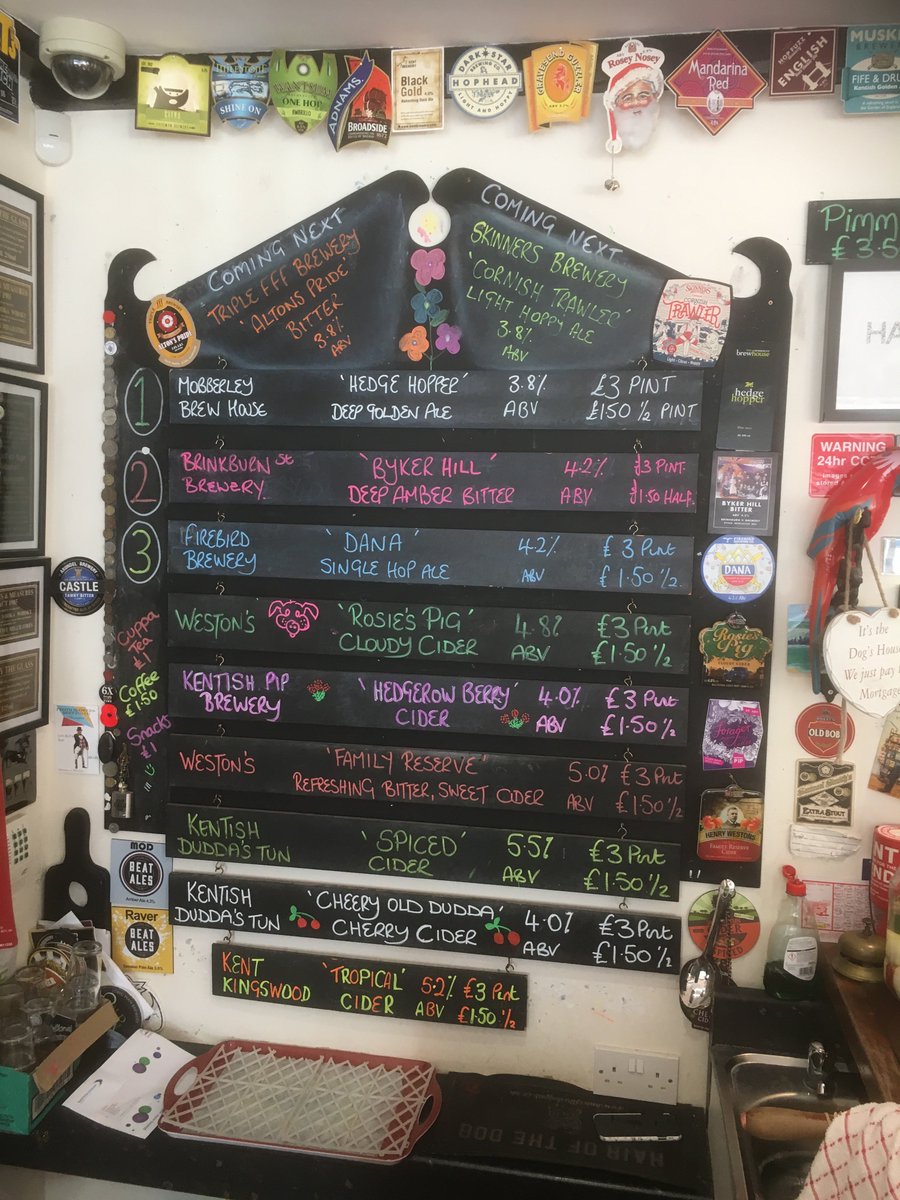 SHINE ON
WANTSUM
ONE HOP
ADNAMS
BROADSIDE
Black
Gold
DARK STAR
HOPHEAD
Rosey Nosey
Mandarina
Red
HOPFUZZ
ENGLISH
FIFE & DRUM
Kentish Golden
Pimm
£3.5
COMING NEXT
TRIPLE FFF BREWERY
'ALTONS PRIDE'
BITTER
3.8%
ABV
COMING NEXT
SKINNERS BREWERY
'CORNISH TRAWLER'
LIGHT HOPPY ALE
3.8%
ABV
ALTON'S PRIDE
CORNISH
TRAWLER
1
MOBBERLEY 'HEDGE HOPPER' 3.8% £3 PINT
BREW HOUSE DEEP GOLDEN ALE ABV £1.50 1/2 PINT
brewhouse
the
hedge
hopper
2
BRINKBURN ST 'BYKER HILL' 4.2% £3 PINT
BREWERY DEEP AMBER BITTER ABV £1.50 HALF
BYKER HILL
BITTER
3
FIREBIRD 'DANA' 4.2% £3 Pint
BREWERY SINGLE HOP ALE ABV £1.50 1/2
DANA
WESTON'S 'ROSIE'S PIG' 4.8% £3 Pint
CLOUDY CIDER ABV £1.50 1/2
Rosie's
Pig
KENTISH PIP 'HEDGEROW BERRY' 4.0% £3 Pint
BREWERY CIDER ABV £1.50 1/2
WESTON'S 'FAMILY RESERVE' 5.0% £3 Pint
REFRESHING BITTER, SWEET CIDER ABV £1.50 1/2
HENRY WESTONS
FAMILY RESERVE
KENTISH 'SPICED' 5.5% £3 Pint
DUDDA'S TUN CIDER ABV £1.50 1/2
KENTISH 'CHEERY OLD DUDDA' 4.0% £3 Pint
DUDDA'S TUN CHERRY CIDER ABV £1.50 1/2
KENT 'TROPICAL' 5.2% £3 Pint
KINGSWOOD CIDER ABV £1.50 1/2
CASTLE
CUPPA
TEA
£1
6X
COFFEE
£1.50
Snacks
£1
MOD
BEAT
ALES
Raver
BEAT
ALES
WARNING
24hr CC
It's the
Dog's House
We just pay
Mortgage
OLD BOB
EXTRA STOUT
HAIR OF THE DOG